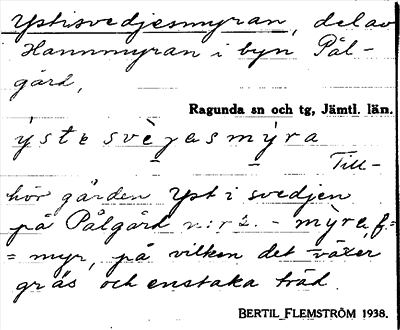 Ystisvedjesmyran, del av
Hammmyran i byn Pål-
gård,
Ragunda sn och tg, Jämtl. län.
ystesvèjesmýra
Till-
hör gården Yst i svedjen
på Pålgård n:r 2. - myra, f.=
= myr, på vilken det växer
gräs och enstaka träd.
BERTIL FLEMSTRÖM 1938.